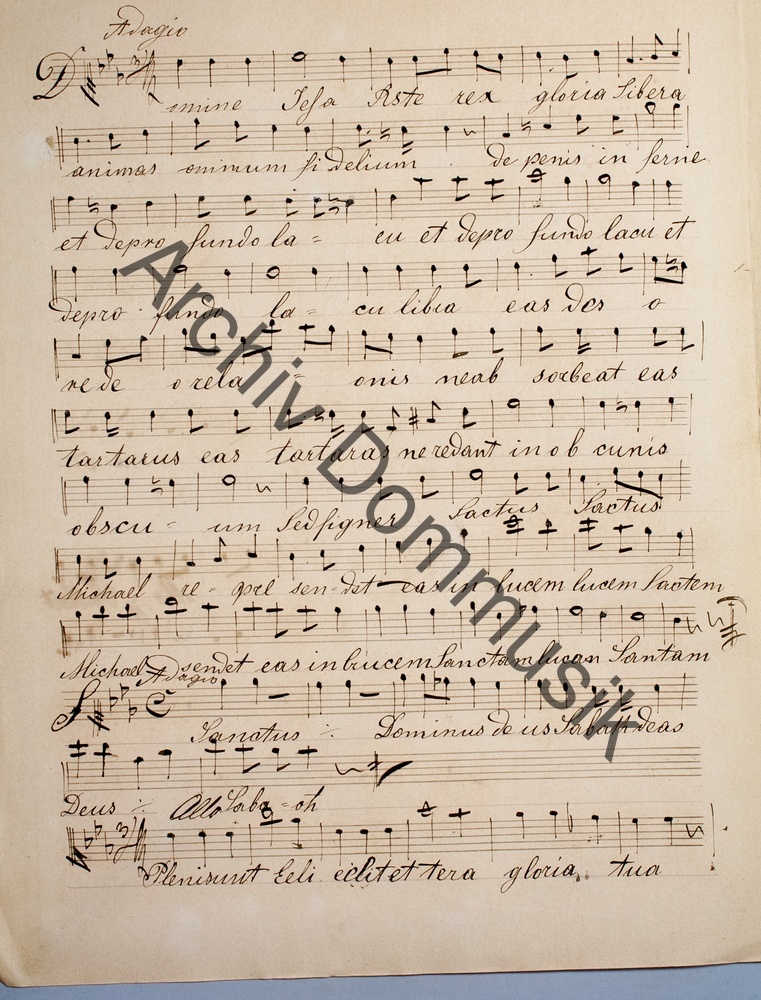 Adagio
D omine Jesa Kste rex gloria Libera
animas omimum fi delium de penis in ferne
et depro fundo la = cu et depro fundo lacu et
depro fundo la = cu libra eas des o
ne de o rela = onis neab sorbeat eas
tartarus eas tartaras ne redant in ob cunis
obscu = um Sedsigner Sactus Sactus
Michael re = pre sen = det eas in lucem lucem Sactem
Michael sendet eas in brucem Sanctam lucan Santam
Adagio
S C
Sanctus Dominus de us Sabath deas
Deus Allo Saba = oh
Plenisunt Eeli eclit et tera gloria tua
Archiv Dommusik